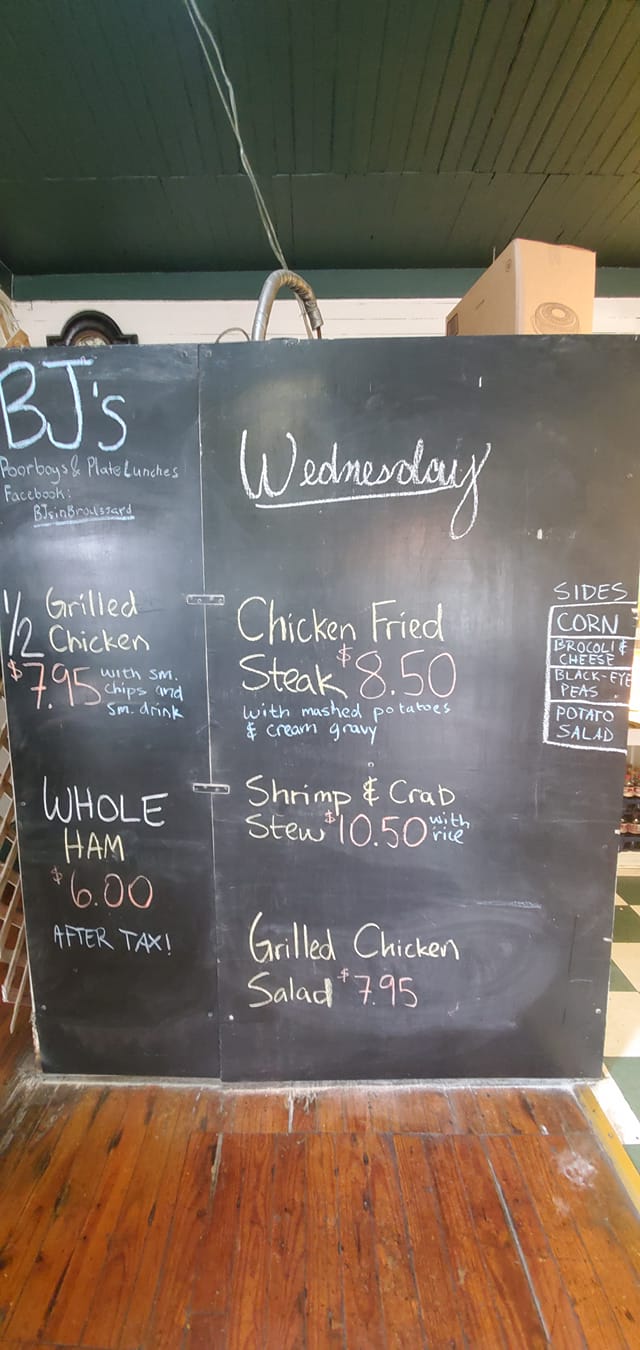 BJ's
Poorboys & Plate Lunches
Facebook:
BJsinBroussard
1/2 Grilled
Chicken
$7.95 with sm.
chips and
sm. drink
WHOLE
HAM
$6.00
AFTER TAX!
Wednesday
Chicken Fried
Steak $8.50
with mashed potatoes
& cream gravy
Shrimp & Crab
Stew $10.50 with
rice
Grilled Chicken
Salad $7.95
SIDES
CORN
BROCOLI &
CHEESE
BLACK-EYE
PEAS
POTATO
SALAD